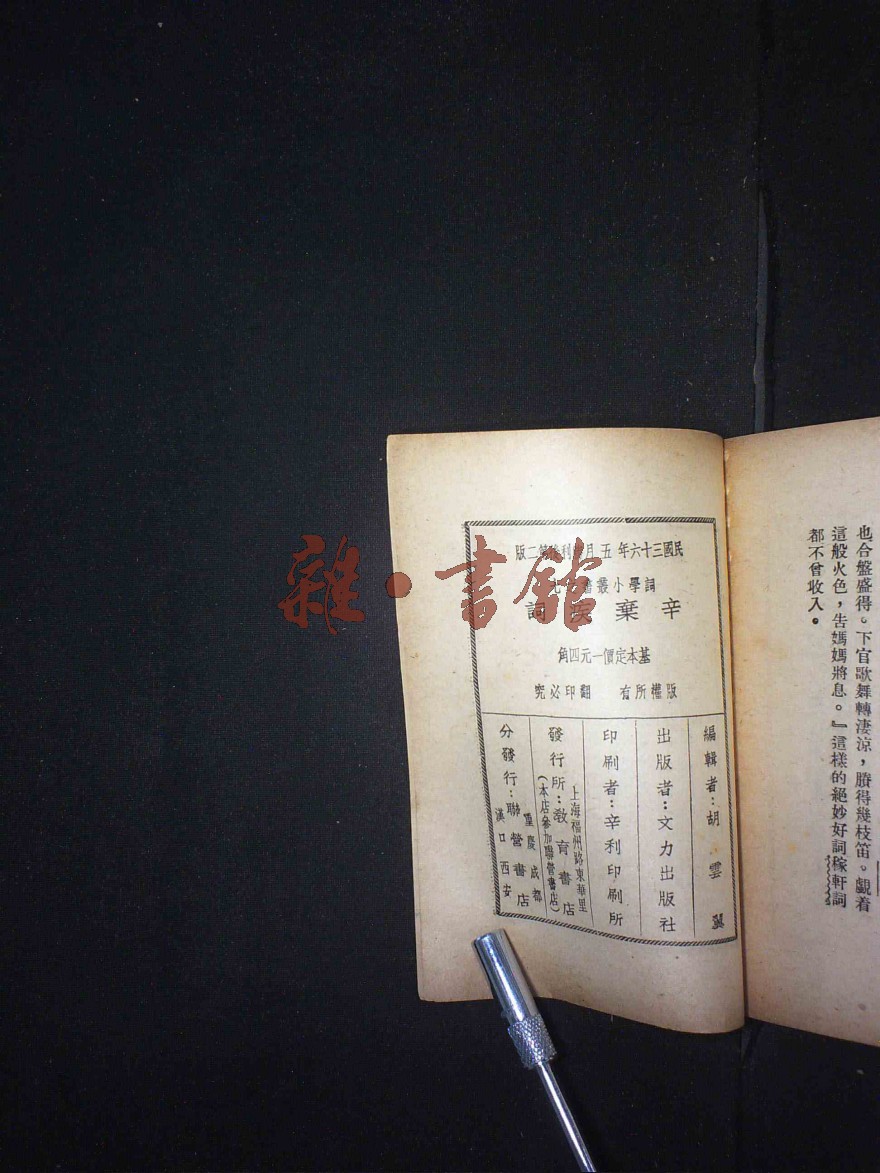 也合盤盛得。下官歌舞轉淒涼，賸得幾枝笛。覷着
這般火色，告媽媽將息。』這樣的絕妙好詞稼軒詞
都不曾收入。
民國三十六年五月 利 第二版
詞學小叢書
辛棄疾詞
基本定價一元四角
版權所有 翻印必究
編輯者：胡雲翼
出版者：文力出版社
印刷者：辛利印刷所
上海福州路東華里
發行所：敎育書店
（本店參加聯營書店）
重慶 成都
分發行：聯營書店
漢口 西安
雜·書館